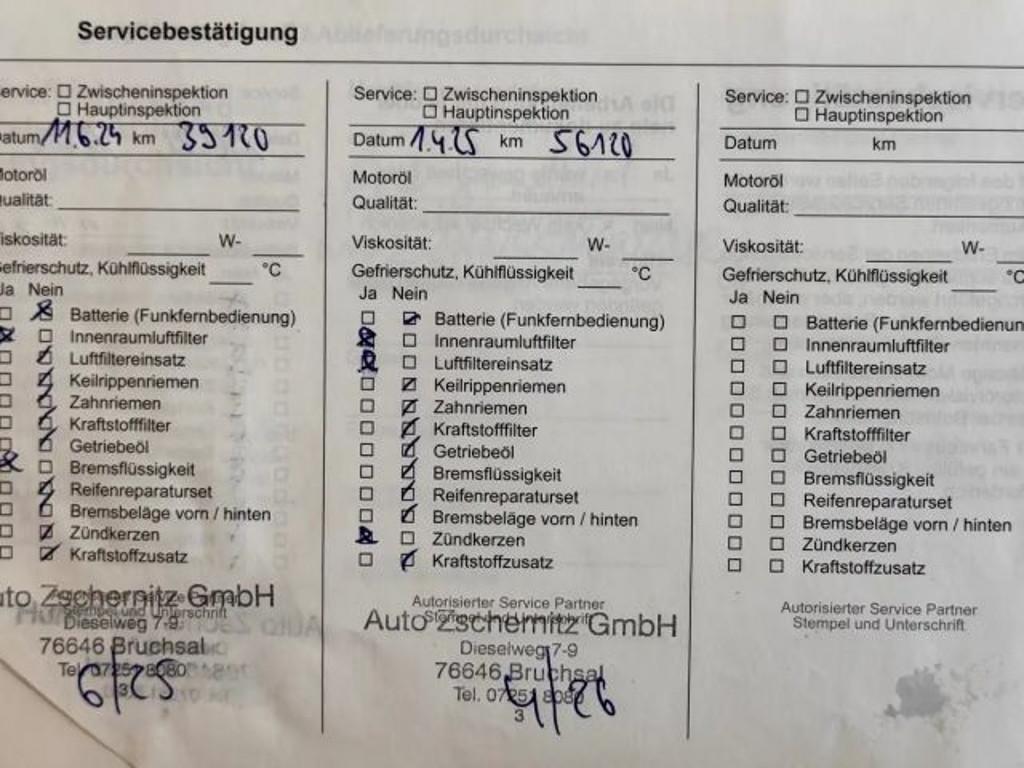 Servicebestätigung
ervice: ☐ Zwischeninspektion
☐ Hauptinspektion
atum 11.6.24 km 39120
otoröl
ualität:
iskosität: W-
efrierschutz, Kühlflüssigkeit °C
Ja Nein
Batterie (Funkfernbedienung)
Innenraumluftfilter
Luftfiltereinsatz
Keilrippenriemen
Zahnriemen
Kraftstofffilter
Getriebeöl
Bremsflüssigkeit
Reifenreparaturset
Bremsbeläge vorn / hinten
Zündkerzen
Kraftstoffzusatz
uto Zschernitz GmbH
Stempel und Unterschrift
Dieselweg 7-9
76646 Bruchsal
Tel. 07251 8080
3
6/25
Service: ☐ Zwischeninspektion
☐ Hauptinspektion
Datum 1.4.25 km 56120
Motoröl
Qualität:
Viskosität: W-
Gefrierschutz, Kühlflüssigkeit °C
Ja Nein
Batterie (Funkfernbedienung)
Innenraumluftfilter
Luftfiltereinsatz
Keilrippenriemen
Zahnriemen
Kraftstofffilter
Getriebeöl
Bremsflüssigkeit
Reifenreparaturset
Bremsbeläge vorn / hinten
Zündkerzen
Kraftstoffzusatz
Autorisierter Service Partner
Stempel und Unterschrift
Auto Zschernitz GmbH
Dieselweg 7-9
76646 Bruchsal
Tel. 07251 8080
3
4/26
Service: ☐ Zwischeninspektion
☐ Hauptinspektion
Datum km
Motoröl
Qualität:
Viskosität: W-
Gefrierschutz, Kühlflüssigkeit °C
Ja Nein
Batterie (Funkfernbedienun
Innenraumluftfilter
Luftfiltereinsatz
Keilrippenriemen
Zahnriemen
Kraftstofffilter
Getriebeöl
Bremsflüssigkeit
Reifenreparaturset
Bremsbeläge vorn / hinten
Zündkerzen
Kraftstoffzusatz
Autorisierter Service Partner
Stempel und Unterschrift